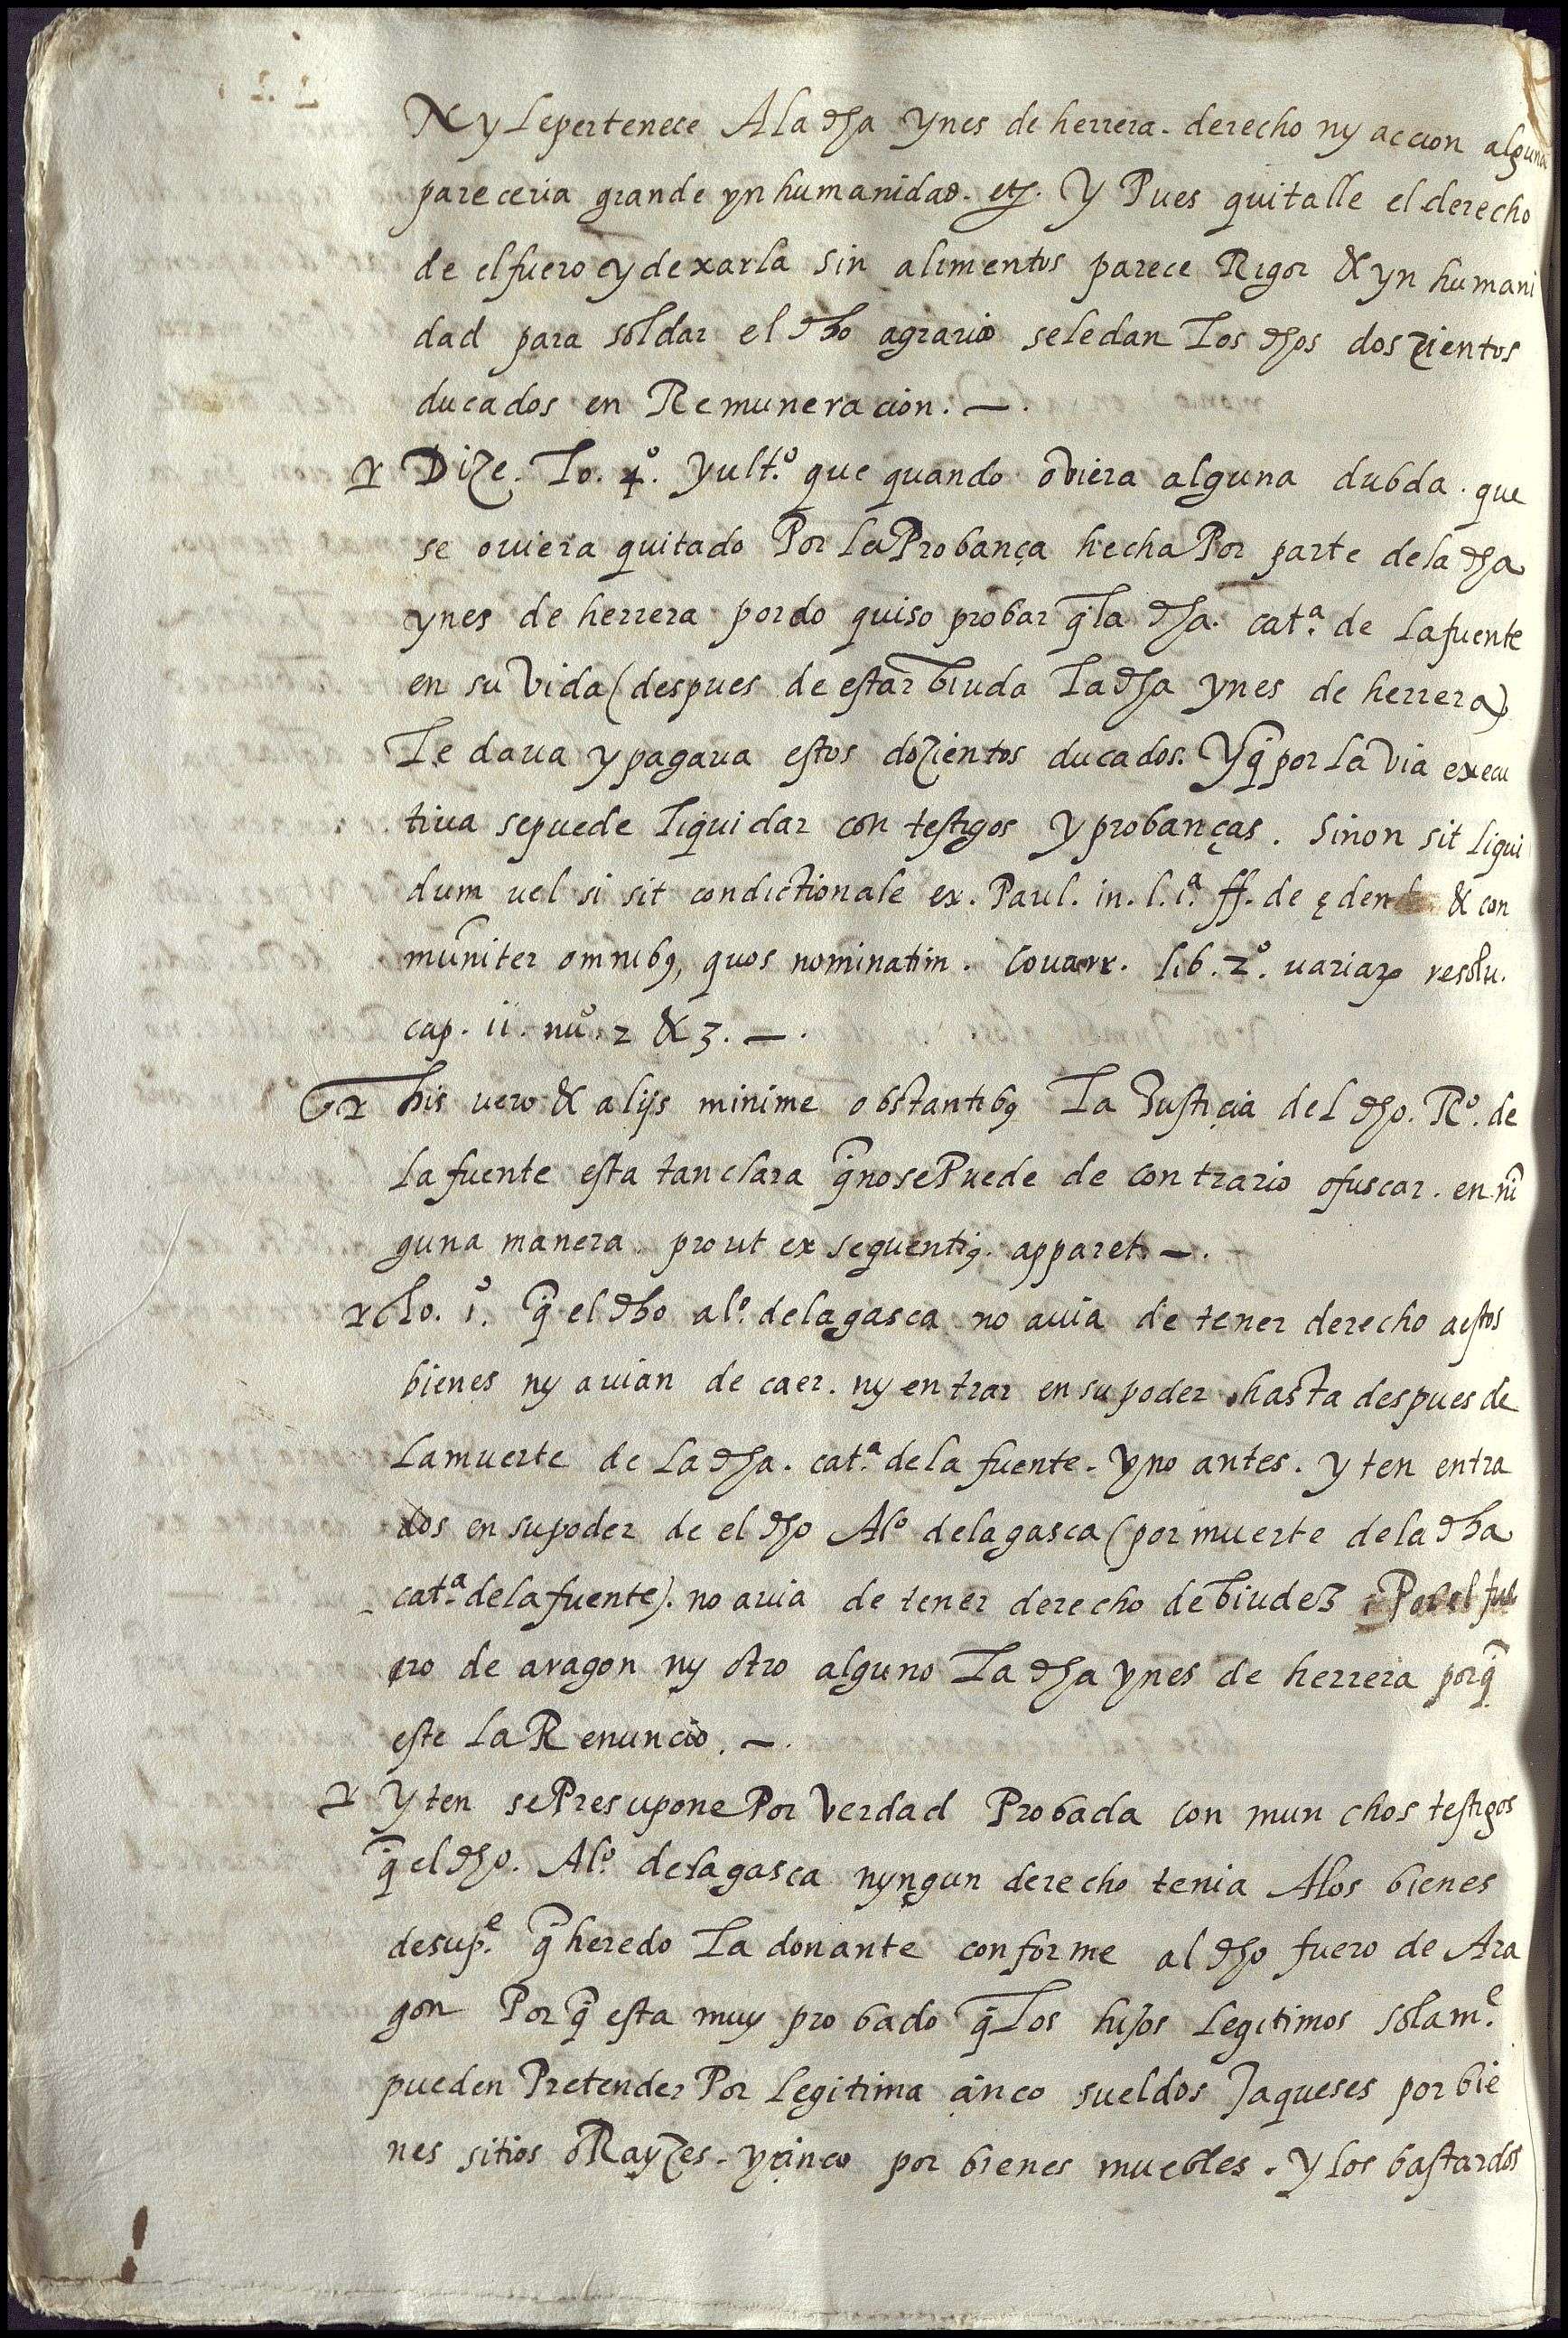 Ny le pertenece A la dha ynes de herrera. derecho ny accion alguna
pareceria grande ynhumanidad. etc. Y Pues quitalle el derecho
de el fuero y dexarla sin alimentos parece Rigor & yn humani
dad para soldar el dho agrario se le dan los dhos dos zientos
ducados en Remuneracion. —.
Dize. lo. 4º. y ult.º que quando oviera alguna dubda. que
se oviera quitado Por la Probança hecha Por parte de la dha
ynes de herrera por do quiso probar q̃ la dha. cat.ª de la fuente
en su vida (despues de estar biuda la dha ynes de herrera)
le daua y pagaua estos dozientos ducados. Y q̃ por la via execu
tiua se puede liquidar con testigos y probanças. Si non sit liqui
dum uel si sit condictionale ex. Paul. in. l. 1.ª ff. de ędend & con
muniter omnibq, quos nominatim. Couarr. lib. 2º. uariar resolu.
cap. ii. nuº. 2 & 3. —.
his uero & alijs minime obstantibq la Justicia del dho. Rº. de
la fuente esta tan clara q̃ no se Puede de contrario ofuscar. en ni
guna manera. prout ex sequentiq. apparet. —.
lo. 1º. q̃ el dho alº. de la gasca no auia de tener derecho a estos
bienes ny auian de caer. ny entrar en su poder. hasta despues de
la muerte de la dha. cat.ª de la fuente. y no antes. y ten entra
dos en su poder de el dho Alº de la gasca (por muerte de la dha
cat.ª de la fuente). no auia de tener derecho de biudez Por el fue
ro de aragon ny otro alguno la dha ynes de herrera porq̃
este la Renuncio. —.
Y ten se Presupone Por verdad Probada con mun chos testigos
q̃ el dho. Alº. de la gasca nyngun derecho tenia A los bienes
de su p.e q̃ heredo la donante conforme al dho fuero de Ara
gon Por q̃ esta muy probado q̃ los hijos legitimos solam.e
pueden Pretender Por legitima cinco sueldos Jaqueses por bie
nes sitios o Rayzes. y cinco por bienes muebles. y los bastardos